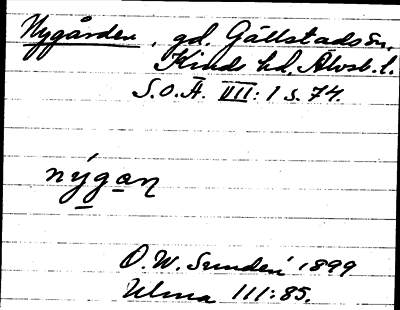 Nygården, gd. Gällstads sn,
Kinds hd, Älvsb. l.
S.O.Ä. VII: 1 s. 74.
nýgan
O.W. Sundén 1899
Ulma 111:85.